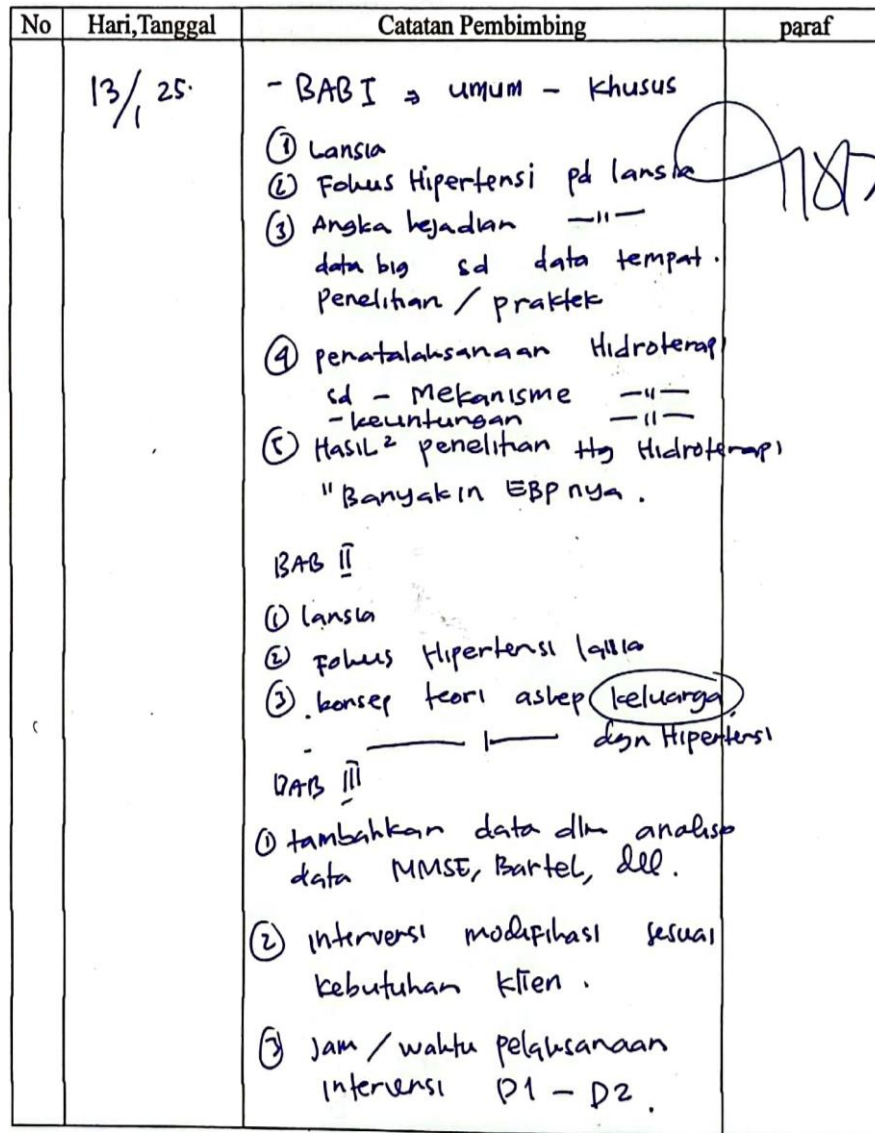 No Hari,Tanggal Catatan Pembimbing paraf
13/1 25. - BAB I → umum - khusus
① Lansia
② Fokus Hipertensi pd lansia
③ Angka kejadian —11—
data big sd data tempat.
Penelitian / praktek
④ penatalaksanaan Hidroterapi
sd - Mekanisme —11—
- keuntungan —11—
⑤ Hasil² penelitian Hg Hidroterapi
"Banyakin EBP nya.
BAB II
① lansia
② Fokus Hipertensi lansia
③ konsep teori askep keluarga
- ——— 1 ——— dgn Hipertensi
BAB III
① tambahkan data dlm analisa
data MMSE, Bartel, dll.
② intervensi modifikasi sesuai
kebutuhan klien.
③ Jam / waktu pelaksanaan
intervensi D1 - D2.